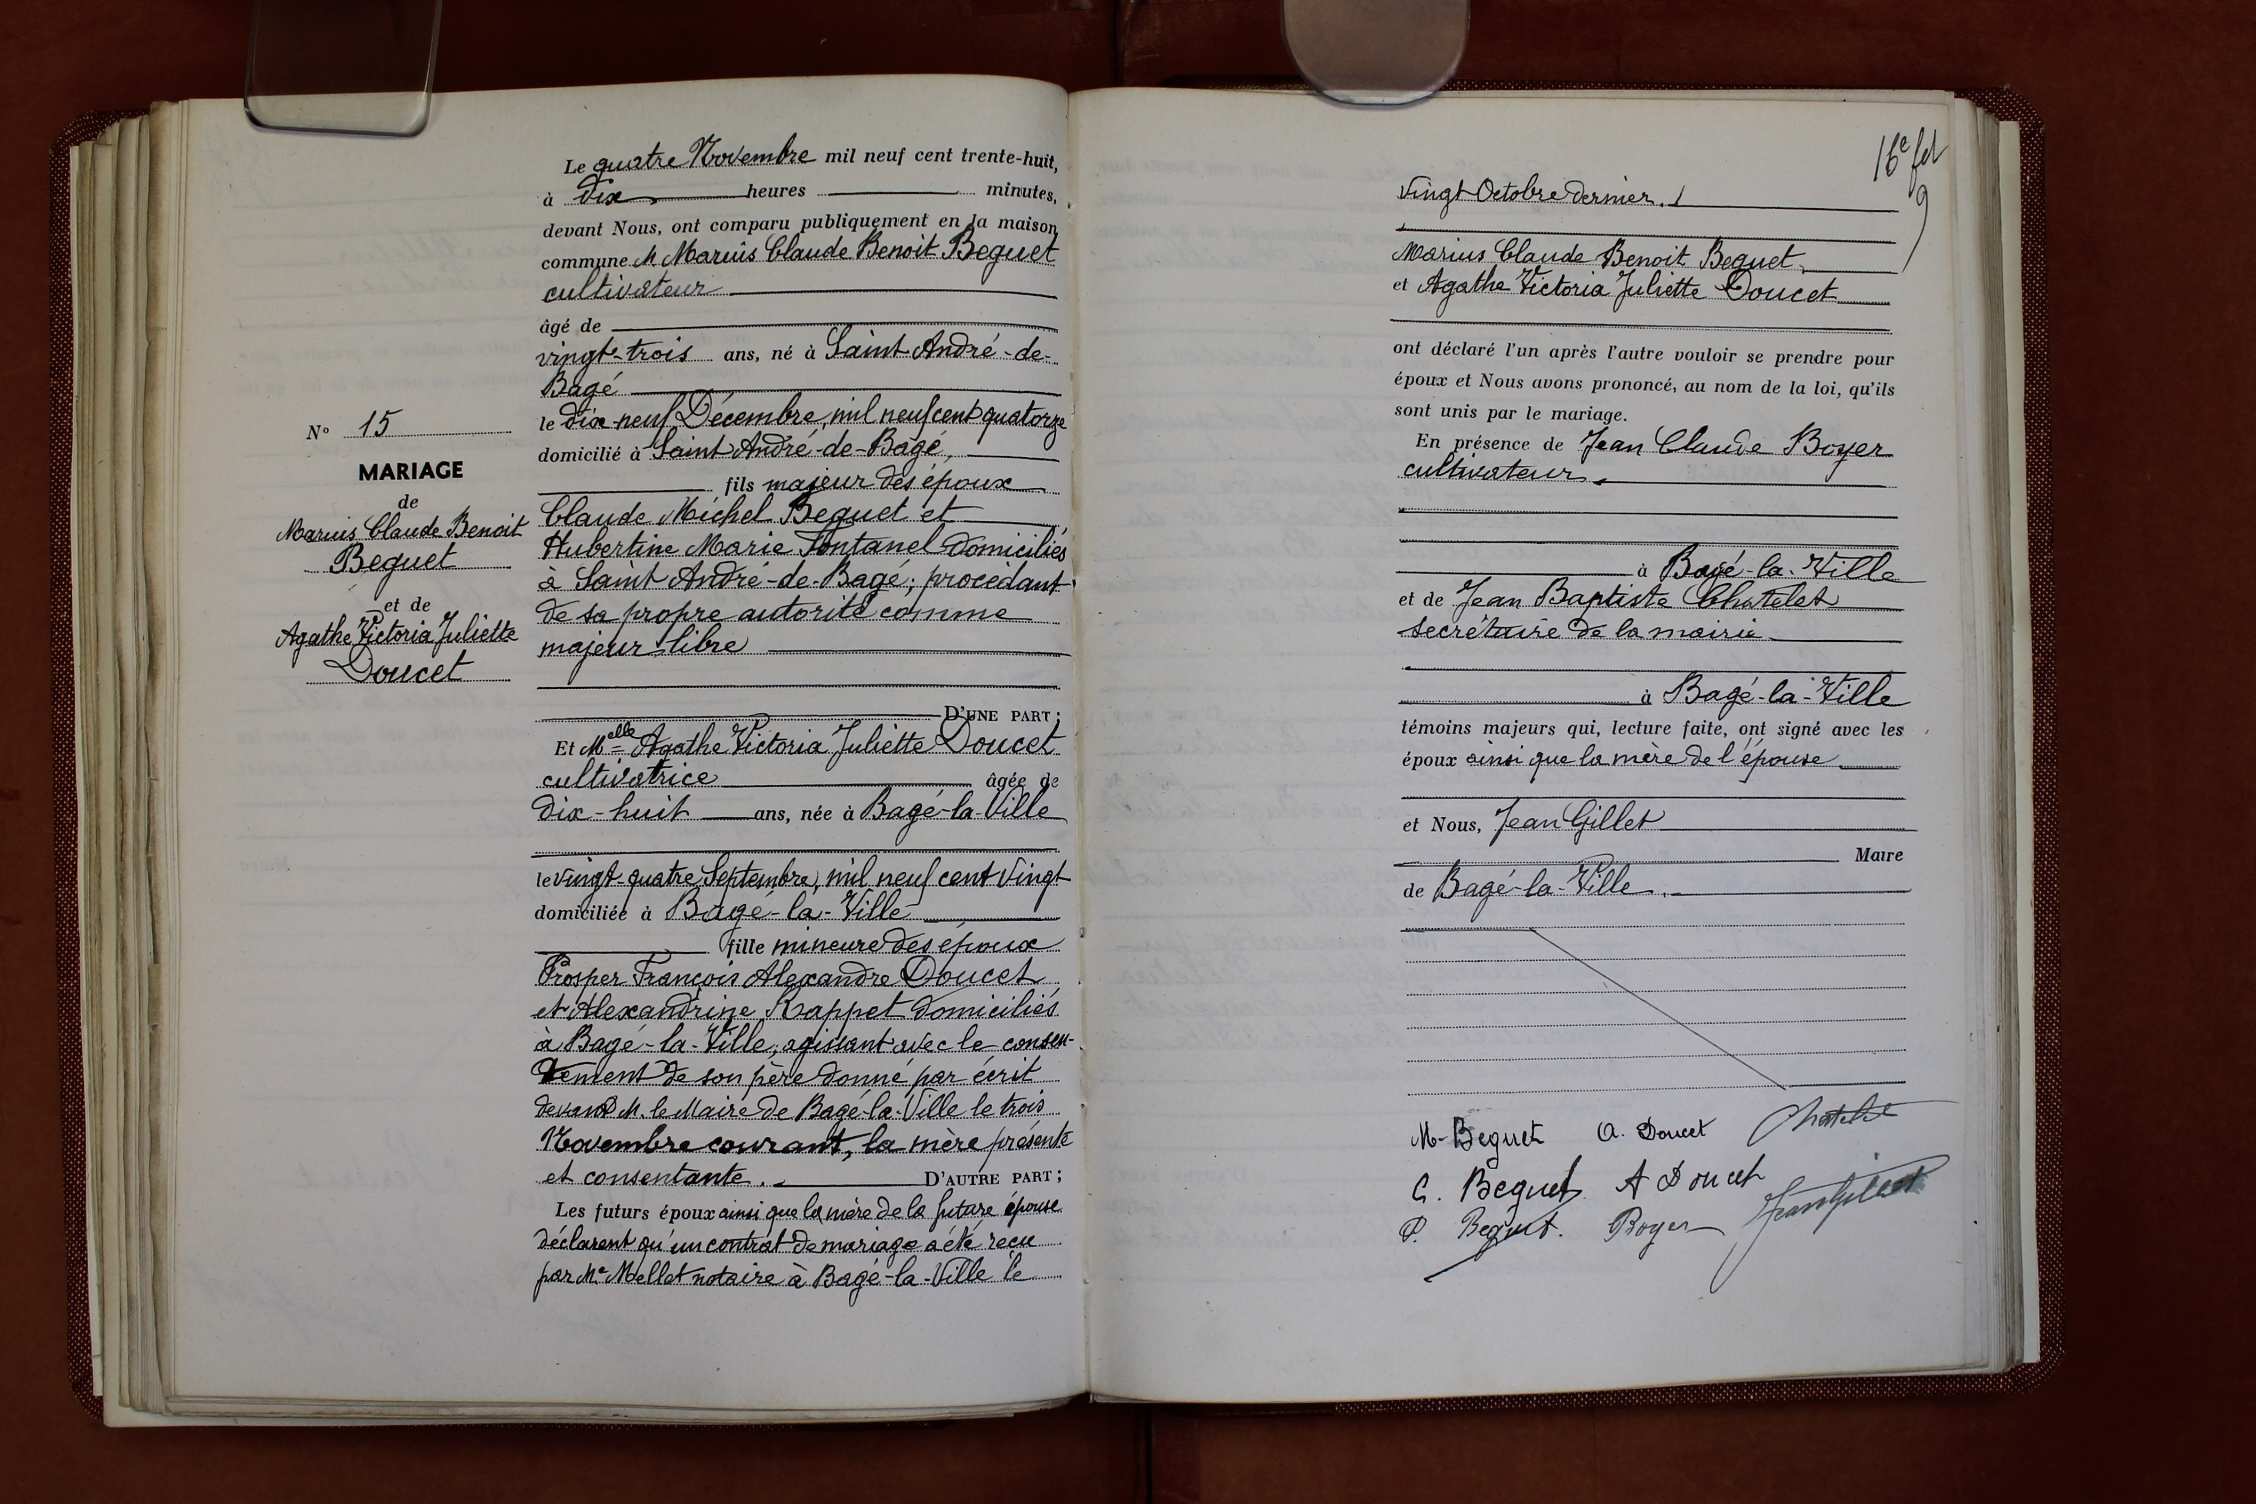 N° 15
MARIAGE
de
Marius Claude Benoit
Beguet
et de
Agathe Victoria Juliette
Doucet
Le quatre Novembre mil neuf cent trente-huit,
à dix heures minutes,
devant Nous, ont comparu publiquement en la maison
commune M Marius Claude Benoit Beguet
cultivateur
âgé de
vingt-trois ans, né à Saint André-de-
Bagé
le dix-neuf Décembre, mil neuf cent quatorze
domicilié à Saint André-de-Bagé,
fils majeur des époux
Claude Michel Beguet et
Hubertine Marie Fontanel domiciliés
à Saint André-de-Bagé; procédant
de sa propre autorité comme
majeur libre
D'UNE PART;
Et Melle Agathe Victoria Juliette Doucet
cultivatrice âgée de
dix-huit ans, née à Bagé-la-Ville
le vingt-quatre Septembre, mil neuf cent vingt
domiciliée à Bagé-la-Ville
fille mineure des époux
Prosper François Alexandre Doucet
et Alexandrine Rappet domiciliés
à Bagé-la-Ville, agissant avec le consen-
tement de son père donné par écrit
devant M. le Maire de Bagé-la-Ville le trois
Novembre courant, la mère présente
et consentante. D'AUTRE PART;
Les futurs époux ainsi que la mère de la future épouse
déclarent qu'un contrat de mariage a été reçu
par Me Mellet notaire à Bagé-la-Ville le
16e fet
vingt Octobre dernier.
Marius Claude Benoit Beguet
et Agathe Victoria Juliette Doucet
ont déclaré l'un après l'autre vouloir se prendre pour
époux et Nous avons prononcé, au nom de la loi, qu'ils
sont unis par le mariage.
En présence de Jean Claude Boyer
cultivateur
à Bagé-la-Ville
et de Jean Baptiste Chatelet
secrétaire de la mairie
à Bagé-la-Ville
témoins majeurs qui, lecture faite, ont signé avec les
époux ainsi que la mère de l'épouse
et Nous, Jean Gillet
Maire
de Bagé-la-Ville.
M. Beguet A. Doucet Chatelet
C. Beguet A Doucet
P. Beguet. Boyer Jean Gillet